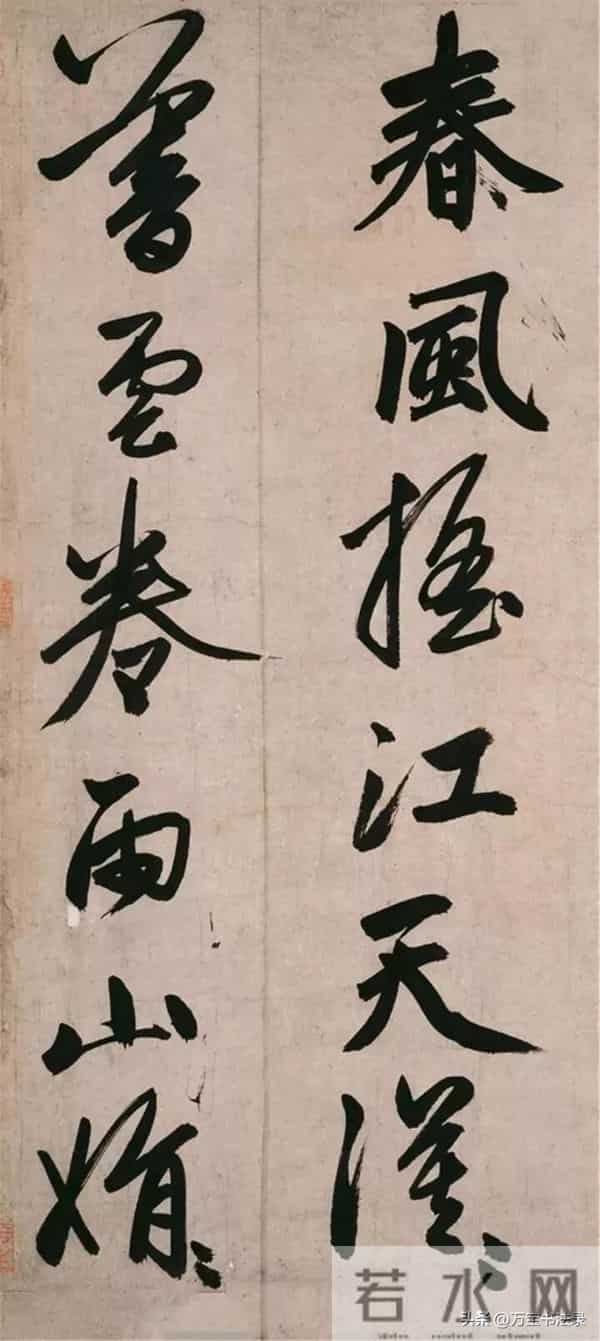 春風搖江天漠〻
暮雲卷雨山娟〻
若水网
头条 @万书法录